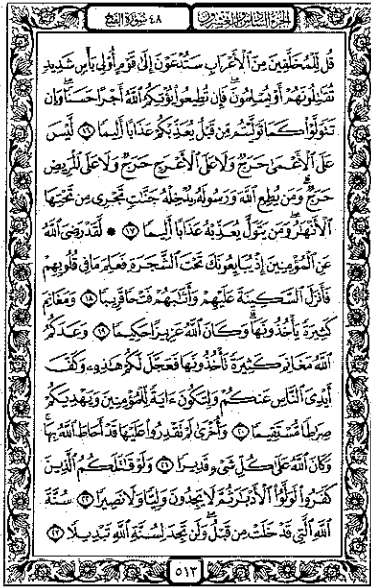 الجزء السادس والعشرون ٤٨ سورة الفتح
قُل لِّلْمُخَلَّفِينَ مِنَ ٱلْأَعْرَابِ سَتُدْعَوْنَ إِلَىٰ قَوْمٍ أُو۟لِى بَأْسٍ شَدِيدٍ
تُقَٰتِلُونَهُمْ أَوْ يُسْلِمُونَ ۖ فَإِن تُطِيعُوا۟ يُؤْتِكُمُ ٱللَّهُ أَجْرًا حَسَنًا ۖ وَإِن
تَتَوَلَّوْا۟ كَمَا تَوَلَّيْتُم مِّن قَبْلُ يُعَذِّبْكُمْ عَذَابًا أَلِيمًا ١٦ لَّيْسَ
عَلَى ٱلْأَعْمَىٰ حَرَجٌ وَلَا عَلَى ٱلْأَعْرَجِ حَرَجٌ وَلَا عَلَى ٱلْمَرِيضِ
حَرَجٌ ۗ وَمَن يُطِعِ ٱللَّهَ وَرَسُولَهُۥ يُدْخِلْهُ جَنَّٰتٍ تَجْرِى مِن تَحْتِهَا
ٱلْأَنْهَٰرُ ۖ وَمَن يَتَوَلَّ يُعَذِّبْهُ عَذَابًا أَلِيمًا ١٧ ۞ لَّقَدْ رَضِىَ ٱللَّهُ
عَنِ ٱلْمُؤْمِنِينَ إِذْ يُبَايِعُونَكَ تَحْتَ ٱلشَّجَرَةِ فَعَلِمَ مَا فِى قُلُوبِهِمْ
فَأَنزَلَ ٱلسَّكِينَةَ عَلَيْهِمْ وَأَثَٰبَهُمْ فَتْحًا قَرِيبًا ١٨ وَمَغَانِمَ
كَثِيرَةً يَأْخُذُونَهَا ۗ وَكَانَ ٱللَّهُ عَزِيزًا حَكِيمًا ١٩ وَعَدَكُمُ
ٱللَّهُ مَغَانِمَ كَثِيرَةً تَأْخُذُونَهَا فَعَجَّلَ لَكُمْ هَٰذِهِۦ وَكَفَّ
أَيْدِىَ ٱلنَّاسِ عَنكُمْ وَلِتَكُونَ ءَايَةً لِّلْمُؤْمِنِينَ وَيَهْدِيَكُمْ
صِرَٰطًا مُّسْتَقِيمًا ٢٠ وَأُخْرَىٰ لَمْ تَقْدِرُوا۟ عَلَيْهَا قَدْ أَحَاطَ ٱللَّهُ بِهَا ۚ
وَكَانَ ٱللَّهُ عَلَىٰ كُلِّ شَىْءٍ قَدِيرًا ٢١ وَلَوْ قَٰتَلَكُمُ ٱلَّذِينَ
كَفَرُوا۟ لَوَلَّوُا۟ ٱلْأَدْبَٰرَ ثُمَّ لَا يَجِدُونَ وَلِيًّا وَلَا نَصِيرًا ٢٢ سُنَّةَ
ٱللَّهِ ٱلَّتِى قَدْ خَلَتْ مِن قَبْلُ ۖ وَلَن تَجِدَ لِسُنَّةِ ٱللَّهِ تَبْدِيلًا ٢٣
٥١٣